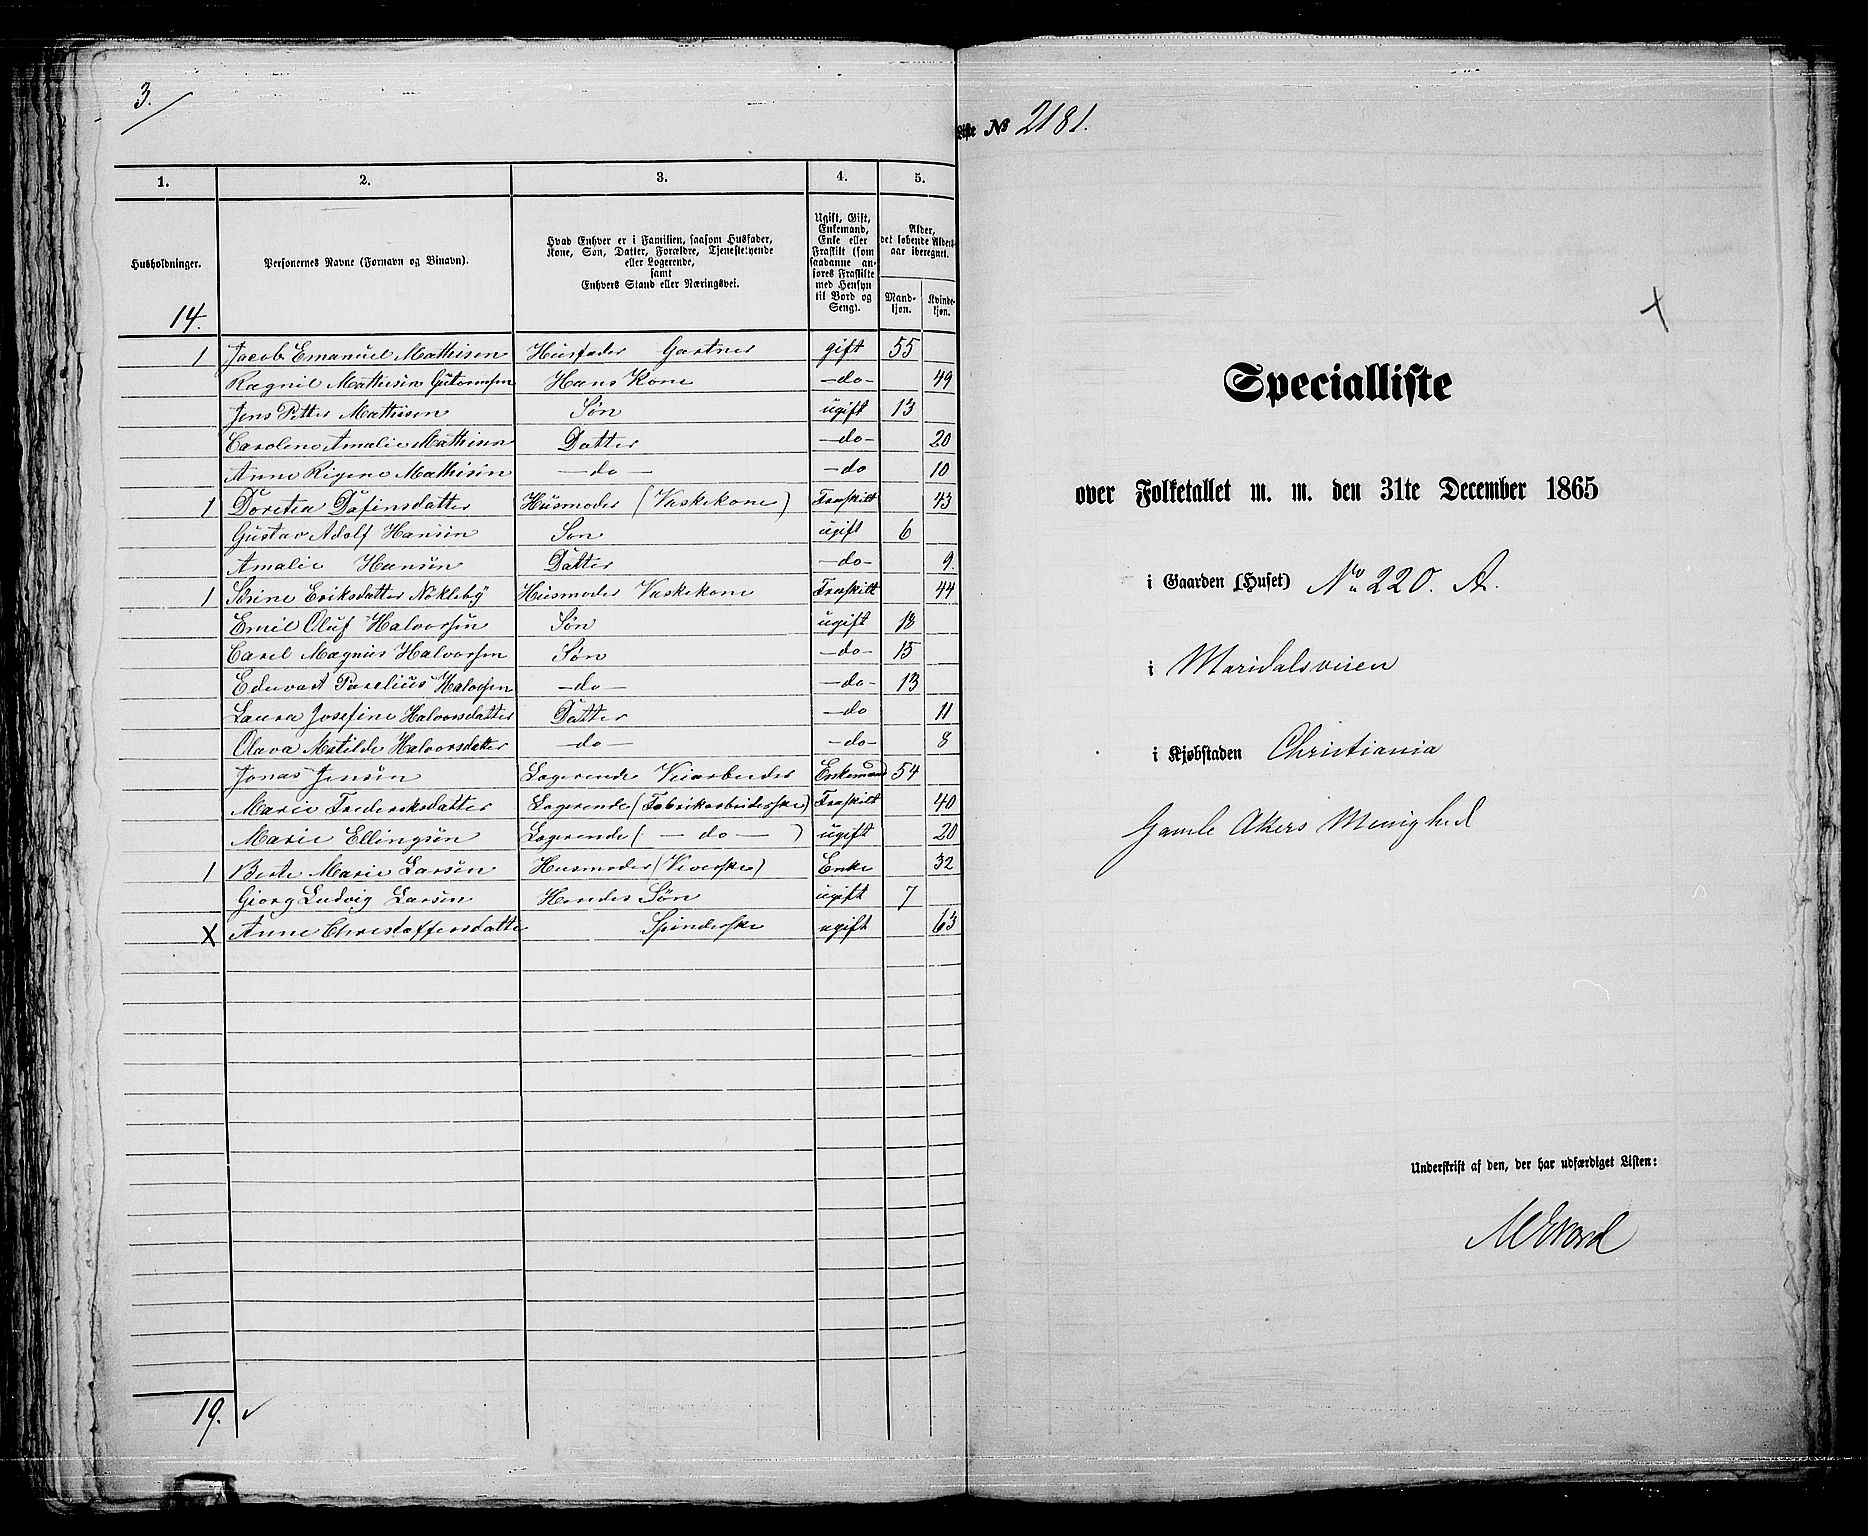 3.
1. 2. 3. 4. 5.
Husholdninger.
Personernes Navne (Fornavn og Binavn).
Hvad Enhver er i Familien, saasom Husfader,
Kone, Søn, Datter, Forældre, Tjenestetyende
eller Logerende,
samt
Enhvers Stand eller Næringsvei.
Ugift, Gift,
Enkemand,
Enke eller
Fraskilt (som
saadanne an-
føres Fraskilte
med Hensyn
til Bord og
Seng).
Alder,
det løbende Alders-
aar iberegnet.
Mand-
kjøn.
Kvinde-
kjøn.
14.
1 Jacob Emanuel Mathisen Husfader Gartner gift 55
Ragnil Mathisen Gutormsen Hans Kone -do- 49
Jens Petter Mathisen Søn ugift 13
Caroline Amalie Mathisen Datter -do- 20
Anne Rigene Mathisen -do- -do 10
1 Doretea Dafinsdatter Husmoder (Vaskekone) Fraskilt 43
Gustav Adolf Hansen Søn ugift 6
Amalie Hansen Datter -do- 9.
1 Sørine Eriksdatter Nökleby Husmoder Vaskekone Fraskilt 44
Emil Oluf Halvorsen Søn ugift 18
Carel Magnus Halvorsen Søn -do- 15
Edevart Parelius Halvorsen -do- -do- 13
Laura Josefine Halvorsdatter Datter -do 11
Olava Matilde Halvorsdatter -do- -do- 8
Jonas Jensen Logerende Veiarbeider Enkemand 54
Marie Frederiksdatter Logerende (Fabrikarbeiderske) Fraskilt 40
Marie Ellingsen Logerende ( -do- ) ugift 20
1 Berte Marie Larsen Husmoder (Veverske) Enke 32
Giorg Ludvig Larsen Hendes Søn ugift 7
X Anne Christoffersdatter Spinderske ugift 63
19. ✓
Liste № 2181.
Specialliste
over Folketallet m. m. den 31te December 1865
i Gaarden (Huset) No 220. A.
i Maridalsveien
i Kjøbstaden Christiania
Gamle Akers Menighed
Underskrift af den, der har udfærdiget Listen: